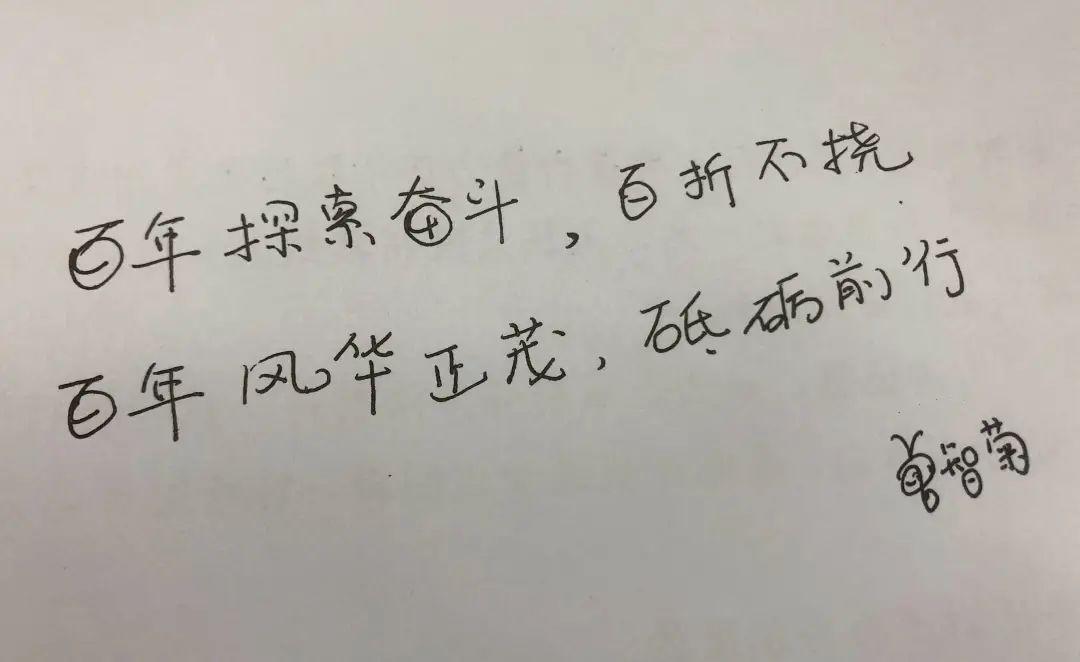 百年探索奋斗，百折不挠
百年风华正茂，砥砺前行
曾智菊